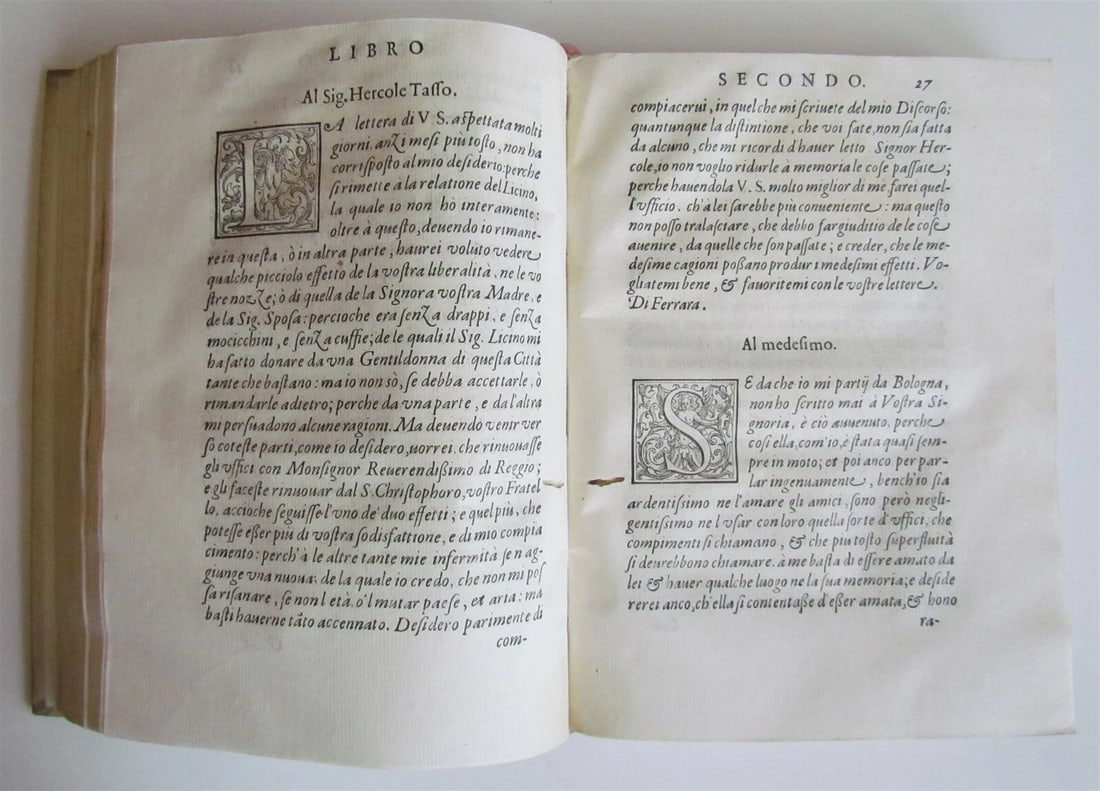 LIBRO
Al Sig. Hercole Tasso.
LA lettera di V S. aspettata molti
giorni, anzi mesi più tosto, non ha
corrisposto al mio desiderio: perche
si rimette à la relatione del Licino,
la quale io non hò interamente:
oltre à questo, deuendo io rimane-
re in questa, ò in altra parte, haurei voluto vedere
qualche picciolo effetto de la vostra liberalità, ne le vo
stre nozze; ò di quella de la Signora vostra Madre, e
de la Sig. Sposa: percioche era senza drappi, e senza
mocicchini, e senza cuffie; de le quali il Sig. Licino mi
ha fatto donare da vna Gentildonna di questa Città
tante che bastano: ma io non sò, se debba accettarle, ò
rimandarle adietro; perche da vna parte, e da l'altra
mi persuadono alcune ragioni. Ma deuendo venir ver
so coteste parti, come io desidero, uorrei, che rinuouasse
gli vffici con Monsignor Reuerendißimo di Reggio;
e gli faceste rinuouar dal S. Christophoro, vostro Fratel
lo, accioche seguisse l'vno de' duo effetti; e quel più, che
potesse eßer più di vostra sodisfattione, e di mio compia
cimento: perch'à le altre tante mie infermità se n ag-
giunge vna nuoua: de la quale io credo, che non mi pos
sa risanare, se non l età, ò'l mutar paese, et aria: ma
basti hauerne tāto accennato. Desidero parimente di
com-
SECONDO. 27
compiacerui, in quel che mi scriuete del mio Discorso:
quantunque la distintione, che voi fate, non sia fatta
da alcuno, che mi ricordi d'hauer letto Signor Her-
cole, io non voglio ridurle à memoria le cose passate;
perche hauendola V. S. molto miglior di me, farei quel-
l'vfficio, ch'à lei sarebbe più conueniente: ma questo
non posso tralasciare, che debbo far giuditio de le cose
auenire, da quelle che son passate; e creder, che le me-
desime cagioni poßano produr i medesimi effetti. Vo-
gliatemi bene, & fauoritemi con le vostre lettere.
Di Ferrara.
Al medesimo.
SE da che io mi partij da Bologna,
non ho scritto mai à Vostra Si-
gnoria, è ciò auuenuto, perche
così ella, com'io, è stata quasi sem-
pre in moto; et poi anco per par-
lar ingenuamente, bench'io sia
ardentissimo ne l'amare gli amici, sono però negli-
gentissimo ne l'vsar con loro quella sorte d'vffici, che
compimenti si chiamano, & che più tosto superfluità
si deurebbono chiamare. à me basta di essere amato da
lei & hauer qualche luogo ne la sua memoria; e deside
rerei anco, ch'ella si contentaße d'eßer amata, & hono
ra-